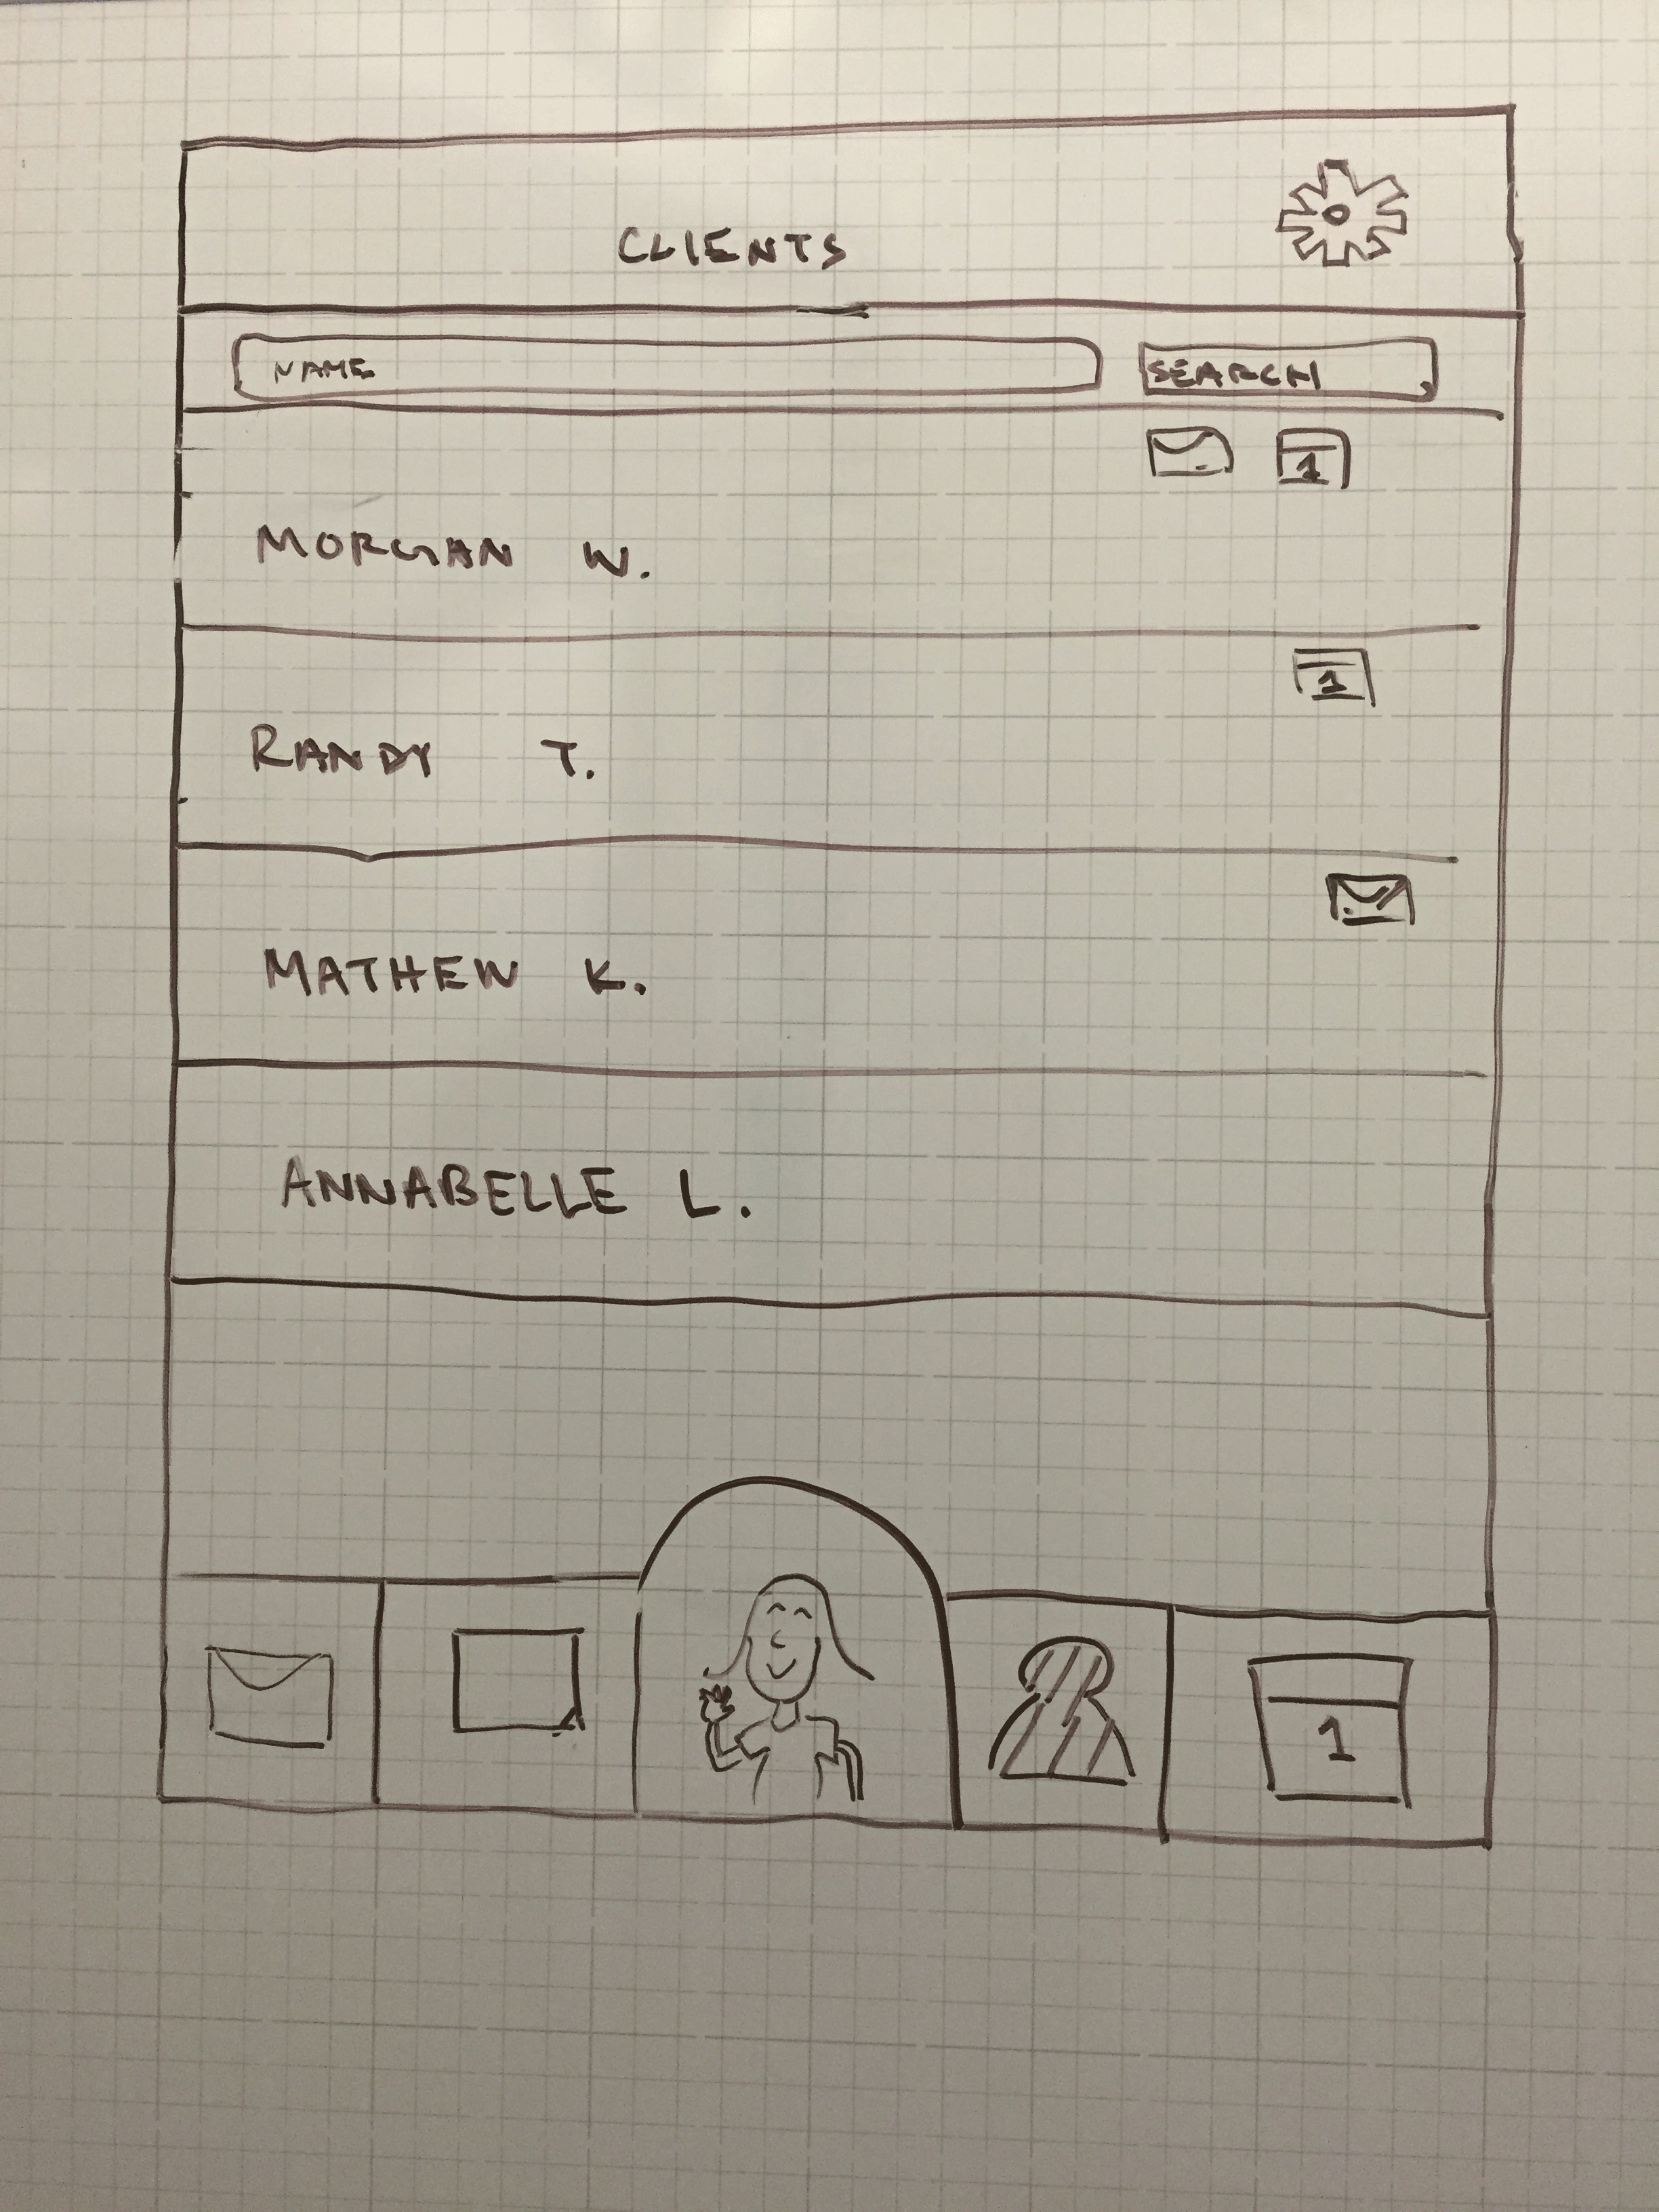 CLIENTS
NAME
SEARCH
1
MORGAN W.
1
RANDY T.
MATHEW K.
ANNABELLE L.
1